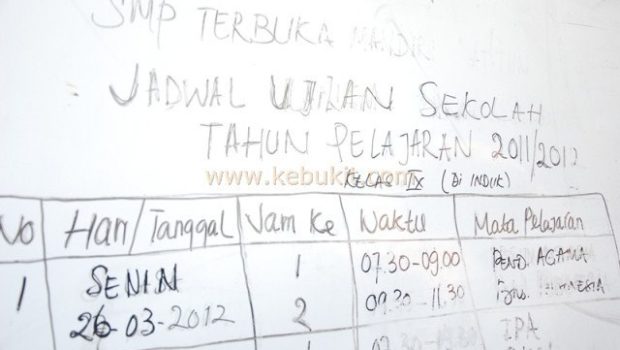 SMP TERBUKA MANDIRI
JADWAL UJIAN SEKOLAH
TAHUN PELAJARAN 2011/2012
www.kebukit.com
KELAS IX (Di INDUK)
No Hari/Tanggal Jam Ke Waktu Mata Pelajaran
1 SENIN 1 07.30-09.00 PEND. AGAMA
26-03-2012 2 09.30-11.30
07.30-09. IPA